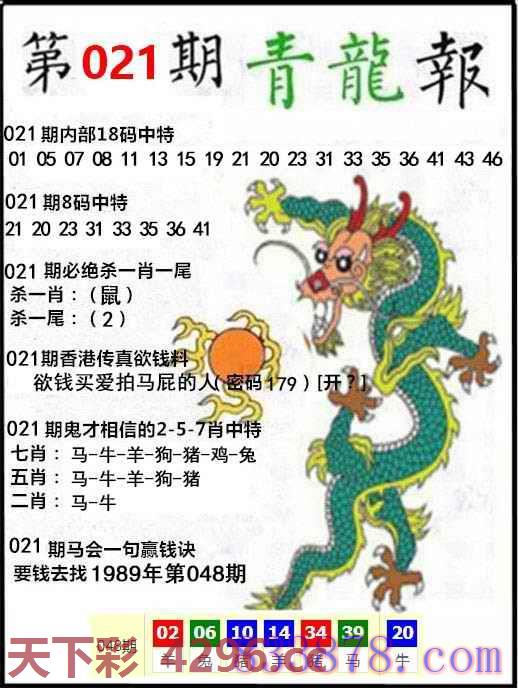 第021期青龍報
021期内部18码中特
01 05 07 08 11 13 15 19 21 20 23 31 33 35 36 41 43 46
021期8码中特
21 20 23 31 33 35 36 41
021期必绝杀一肖一尾
杀一肖:(鼠)
杀一尾:(2)
021期香港传真欲钱料
欲钱买爱拍马屁的人(密码179)[开?]
021期鬼才相信的2-5-7肖中特
七肖:马-牛-羊-狗-猪-鸡-兔
五肖:马-牛-羊-狗-猪
二肖:马-牛
021期马会一句赢钱诀
要钱去找1989年第048期
048期 02 06 10 14 34 39 20
羊 兔 猪 羊 猪 马 牛
天下彩 4296.cc
878.com